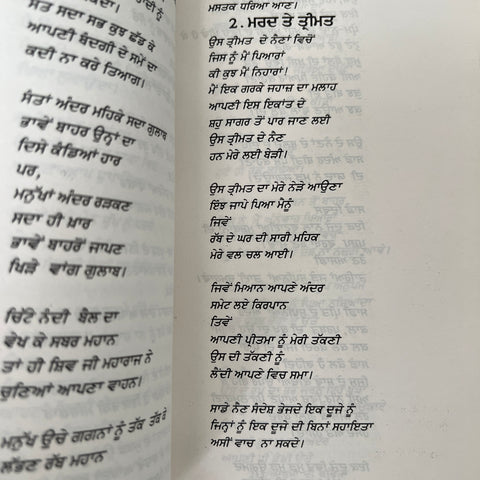 ਸੰਤ ਸਦਾ ਸਭ ਕੁਝ ਛੱਡ ਕੇ
ਆਪਣੀ ਬੰਦਗੀ ਦੇ ਸਮੇਂ ਦਾ
ਕਦੀ ਨਾ ਕਰੇ ਤਿਆਗ।
ਸੰਤਾਂ ਅੰਦਰ ਮਹਿਕੇ ਸਦਾ ਗੁਲਾਬ
ਭਾਵੇਂ ਬਾਹਰ ਉਨ੍ਹਾਂ ਦਾ
ਦਿਸੇ ਕੰਡਿਆਂ ਹਾਰ
ਪਰ,
ਮਨੁੱਖਾਂ ਅੰਦਰ ਰੜਕਣ
ਸਦਾ ਹੀ ਖ਼ਾਰ
ਭਾਵੇਂ ਬਾਹਰੋਂ ਜਾਪਣ
ਖਿੜੇ ਵਾਂਗ ਗੁਲਾਬ।
ਚਿੱਟੇ ਨੰਦੀ ਬੈਲ ਦਾ
ਵੇਖ ਕੇ ਸਬਰ ਮਹਾਨ
ਤਾਂ ਹੀ ਸ਼ਿਵ ਜੀ ਮਹਾਰਾਜ ਨੇ
ਚੁਣਿਆਂ ਆਪਣਾ ਵਾਹਨ।
ਮਨੁੱਖ ਉਚੇ ਗਗਨਾਂ ਨੂੰ ਤੱਕ ਤੱਕ ਕੇ
ਲੱਭਣ ਰੱਬ ਮਹਾਨ
ਮਸਤਕ ਧਰਿਆ ਆਣ।
2. ਮਰਦ ਤੇ ਤ੍ਰੀਮਤ
ਉਸ ਤ੍ਰੀਮਤ ਦੇ ਨੈਣਾਂ ਵਿਚੋਂ
ਜਿਸ ਨੂੰ ਮੈਂ ਪਿਆਰਾਂ
ਕੀ ਕੁਝ ਮੈਂ ਨਿਹਾਰਾਂ!
ਮੈਂ ਇਕ ਗਰਕੇ ਜਹਾਜ਼ ਦਾ ਮਲਾਹ
ਆਪਣੀ ਇਸ ਇਕਾਂਤ ਦੇ
ਸ਼ਹੁ ਸਾਗਰ ਤੋਂ ਪਾਰ ਜਾਣ ਲਈ
ਉਸ ਤ੍ਰੀਮਤ ਦੇ ਨੈਣ
ਹਨ ਮੇਰੇ ਲਈ ਬੇੜੀ।
ਉਸ ਤ੍ਰੀਮਤ ਦਾ ਮੇਰੇ ਨੇੜੇ ਆਉਣਾ
ਇੰਝ ਜਾਪੇ ਪਿਆ ਮੈਨੂੰ
ਜਿਵੇਂ
ਰੱਬ ਦੇ ਘਰ ਦੀ ਸਾਰੀ ਮਹਿਕ
ਮੇਰੇ ਵਲ ਚਲ ਆਈ।
ਜਿਵੇਂ ਮਿਆਨ ਆਪਣੇ ਅੰਦਰ
ਸਮੇਟ ਲਏ ਕਿਰਪਾਨ
ਤਿਵੇਂ
ਆਪਣੀ ਪ੍ਰੀਤਮਾ ਨੂੰ ਮੇਰੀ ਤੱਕਣੀ
ਉਸ ਦੀ ਤੱਕਣੀ ਨੂੰ
ਲੈਂਦੀ ਆਪਣੇ ਵਿਚ ਸਮਾ।
ਸਾਡੇ ਨੈਣ ਸੰਦੇਸ਼ ਭੇਜਦੇ ਇਕ ਦੂਜੇ ਨੂੰ
ਜਿਨ੍ਹਾਂ ਨੂੰ ਇਕ ਦੂਜੇ ਦੀ ਬਿਨਾਂ ਸਹਾਇਤਾ
ਅਸੀਂ ਵਾਚ ਨਾ ਸਕਦੇ।